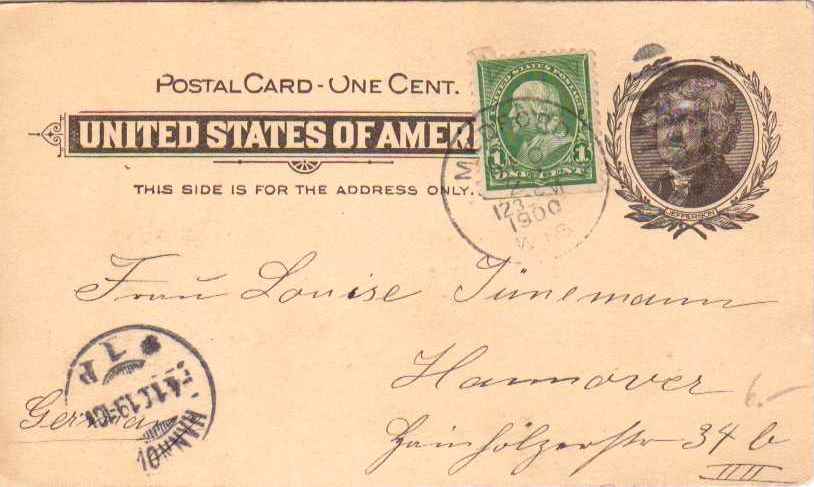 POSTAL CARD - ONE CENT.
UNITED STATES OF AMERI
THIS SIDE IS FOR THE ADDRESS ONLY.
UNITED STATES POSTAGE
1 1
ONE CENT
1230 PM
1900
WIS
JEFFERSON
Frau Louise Jünemann
Hannover
Hainhölzerstr 34 b
III
Germany
HANN
1 P